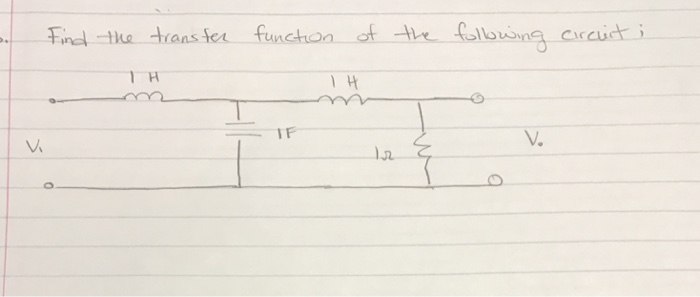 Find the transfer function of the following circuit ;
1 H 1 H
1F
Vi Vo
1Ω